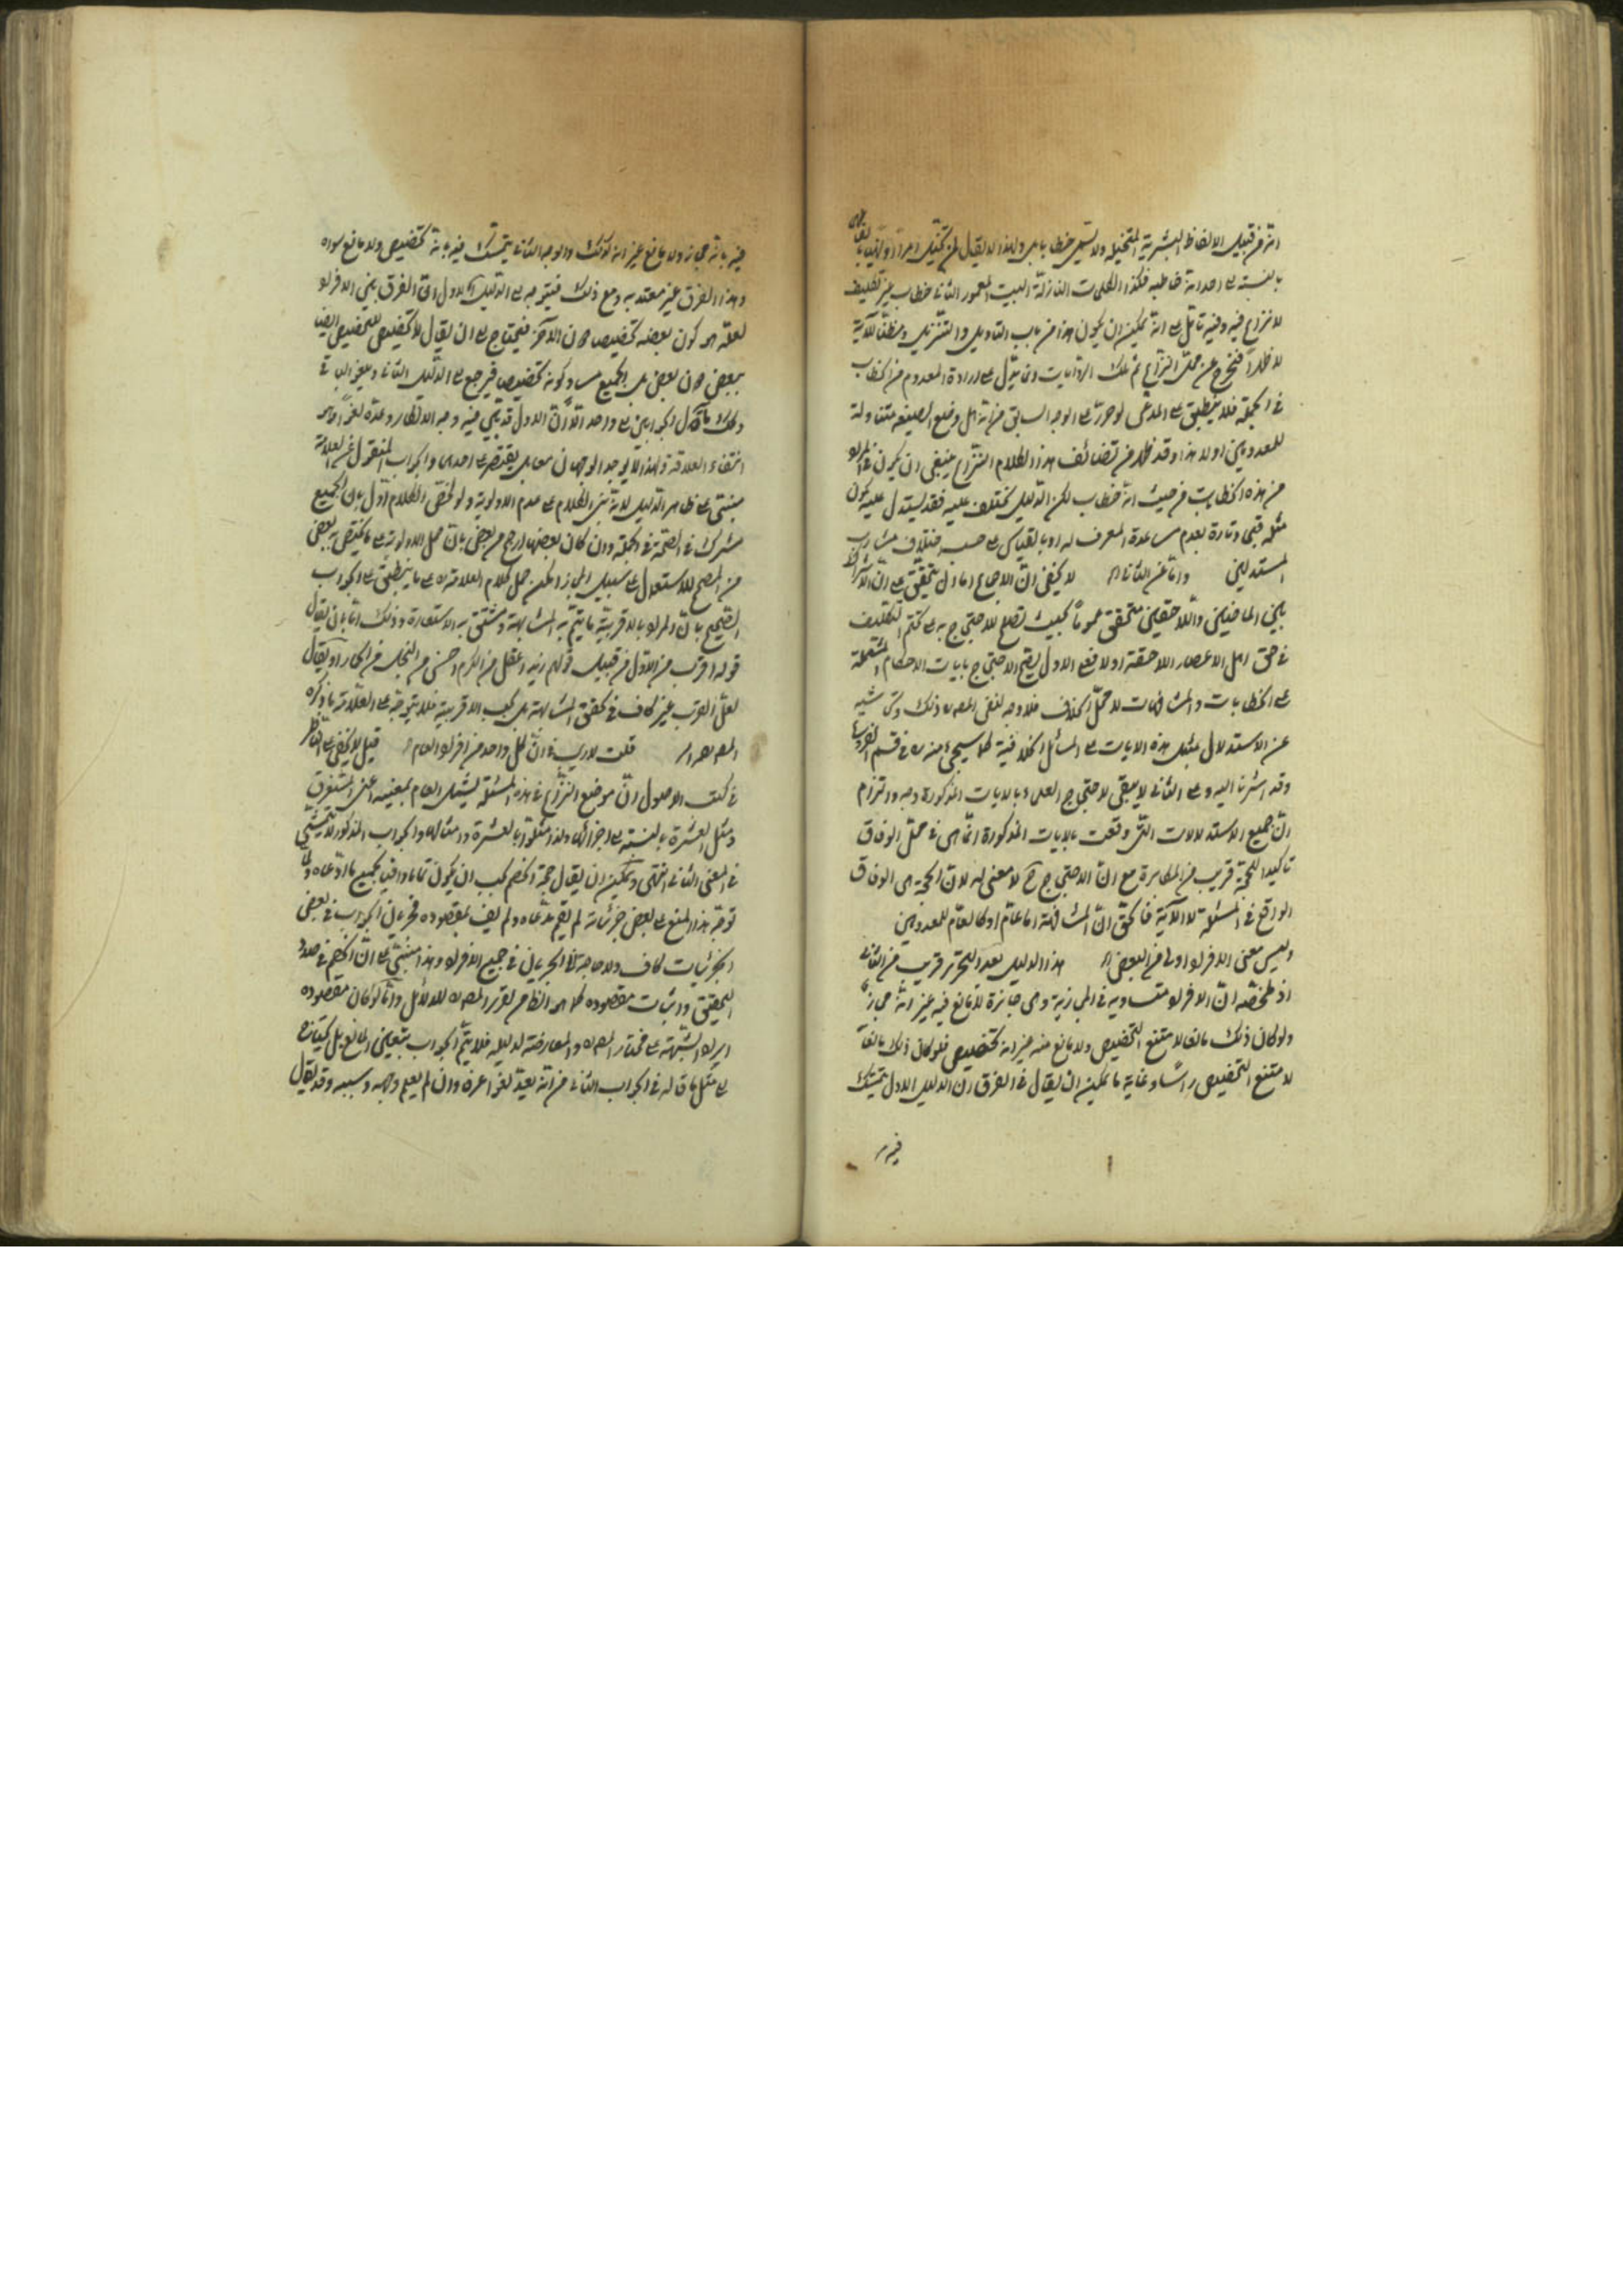 انه من قبيل الالفاظ البشرية المتخيلة ولا يسمى خطابا بل ولهذا لا يقال لمن تخيل امرا
بالنسبة الى احد انه خاطبه فكذا الكلمات النازلة البيت المعمور الثانى خطاب بغير تكليف
لا نزاع فيه وفيه تأمل على انه يمكن ان يكون هذا من باب التأويل والتنزيل
فنخرج عن محل النزاع ثم تلك الروايات وما يدل على ارادة المعدوم من الخطاب
فى الجملة فلا ينطبق على المدعى لو حرر على الوجه السابق من انه هل وضع الصيغة متناولة
للمعدومين او لا هذا وقد ظهر من تضاعف هذا الكلام النزاع ينبغى ان يكون فى المراد
من هذه الخطابات من حيث انه خطاب لكن الدليل مختلف عليه فقد يستدل عليه بكون
مثله قبيحا وتارة بعدم مساعدة المعرف له او بالقياس على حسب اختلاف مشارب
المستدلين واما عن الثانى لا يخفى ان الاجماع اما دل بتحقق على ان الاشتراك
بين الحاضرين واللاحقين متحقق عموما بحيث تصلح للاحتجاج به على تحتم التكليف
فى حق اهل الاعصار اللاحقة او لا فعلى الاول يصح الاحتجاج بايات الاحكام المشتملة
على الخطابات والمشافهات لا محل الخلاف فلا وجه لنفى المصـ ره ذلك
عن الاستدلال بمثل هذه الايات على المسائل الخلافية كما سيجئ منه ره فى قسم
وقد اشرنا اليه وعلى الثانى لا يبقى لاحتجاج العلماء بالايات المذكورة وجه والتزام
ان جميع الاستدلالات التى وقعت بالايات المذكورة انما هى فى محل الوفاق
تاكيدا للحجة قريب من المكابرة مع ان الاحتجاج ح لا معنى له لان الحجة هى الوفاق
الواقع فى المسئلة لا الآية فالحق ان المشافهة اما عام او كالعام للمعدومين
وليس معنى الافراد اولى من البعض هذا الدليل بعد التحرير قريب من الثانى
اذ ملخصه ان الافراد متساوية فى المجازية وهى جائزة لا مانع فيه غير انه مجاز
ولو كان ذلك مانعا لامتنع التخصيص ولا مانع منه غير انه تخصيص فلو كان ذلك مانعا
لامتنع التخصيص راسا وغاية ما يمكن ان يقال فى الفرق ان الدليل الاول يتمسك
فيه
فيه بانه مجاز ولا مانع غير انه كذلك والوجه الثانى يتمسك فيه بانه تخصيص ولا مانع سواه
وهذا الفرق غير معتد به ومع ذلك فيتوجه على الدليل الاول ان الفرق بين الافراد
لعله هو كون بعضه تخصيصا دون الآخر فيحتاج الى ان يقال لا تخصيص للتخصيص ايضا
ببعض دون بعض بل الجميع مساو كونه تخصيصا فيرجع الى الدليل الثانى ويلغو الباقى
وكذلك مآل الجوابين الى واحد الا ان الاول قد بين فيه وجه الانكار وعدّه لغوا وهو
انتفاء العلاقة ولهذا لا يوجد الوجهان معا بل يقتصر على احدهما والجواب المنقول عن العلامة
مبتنى على ظاهر الدليل لانه بنى الكلام على عدم الاولوية ولو لخص الكلام اوّل بان الجميع
مشترك فى الصحة فى الجملة وان كان بعضها ارجح من بعض بان حمل الاولوية على ما يختص به بعض
من المصحح للاستعمال على سبيل المجاز امكن حمل كلام العلامة ره على ما ينطبق على الجواب
الصحيح بان المراد بالاقربية ما يتم به المشابهة وتبتنى به الاستعارة وذلك اما بان يقال
قوله اقرب من الاول من قبيل قولهم زيد اعقل من الكرم احسن من البخل من الحمار او يقال
لعل القرب غير كاف فى تحقق المشابهة بل يجب الاقربية فلا يتوجه على العلامة ما ذكره
المصـ قلت لا ريب فى ان كل واحد من افراد العام قيل لا يخفى على الناظر
فى كتب الاصول ان موضع النزاع فى هذه المسئلة يشمل العام بمعنييه اعنى المستغرق
ومثل العشرة بالنسبة الى اجزائها ولذا مثلوا بالعشرة وامثالها والجواب المذكور لا يتمشى
فى المعنى الثانى انتهى ويمكن ان يقال حجة الخصم يجب ان يكون تماما وافيا بجميع ما ادعاه
توجه هذا المنع على بعض جزئياته لم يتم مدعاه ولم يف بمقصوده فجريان الجواب فى بعض
الجزئيات كاف ولا حاجة الى الجريان فى جميع الافراد وهذا مبتنى على ان الخصم فى صدد
التحقيق واثبات مقصوده كما هو الظاهر لتقرير المصـ ره للدلائل واما لو كان مقصوده
ايراد الشبهة على مختار المصـ ره والمعارضة لدليله فلا يتم الجواب بتعيين المانع بل يحتاج
الى مثل ما قاله فى الجواب الثانى من انه يعد لغوا عرفا وان لم يعلم وجهه وسببه وقد يقال